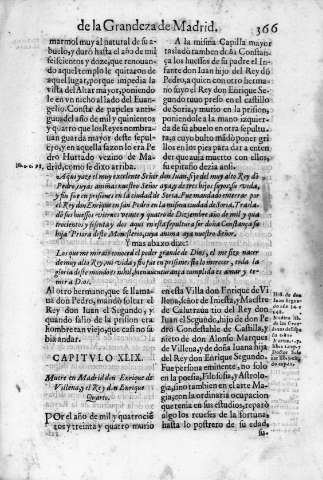 de la Grandeza de Madrid. 366
marmol muy al natural de su a-
buelo, y durò hasta el año de mil
seiscientos y doze, que renouan-
do aquel templo le quitaron de
aquel lugar, porque impedia la
vista del Altar mayor, poniendo
le en vn nicho a lado del Euan-
gelio. Consta de papeles anti-
guos del año de mil y quinientos
y quatro que los Reyes nombra-
uan guarda mayor deste sepul-
cro, y en aquella sazon lo era Pe
dro Hurtado vezino de Ma-
drid, como se dixo arriba.
A la misma Capilla mayor
trasladò tambien doña Constan-
ça los huessos de su padre el In-
fante don Iuan hijo del Rey dõ
Pedro, a quien con otro herma-
no suyo el Rey don Enrique Se-
gundo tuuo preso en el castillo
de Soria, y murio en la prision,
poniendole a la mano izquier-
da de su abuelo en otra sepultu-
ra, a cuyo bulto mãdò poner gri
llos en los pies para dar a enten-
der que auia muerto con ellos,
su epitafio dezia assi.
Aqui yaze el muy excelente Señor don Iuan, hijo del muy alto Rey dõ
Pedro, cuyas animas nuestro Señor aya, y de tres hijos suyos, su vida,
y fin fue en prisiones en la ciudad de Soria. Fue mandado enterrar por
el Rey don Enrique en san Pedro en la misma ciudad de Soria. Trasla-
dò sus huessos viernes veinte y quatro de Diziembre año de mil y qua
trocientos y y siete aqui en esta sepultura señora doña Constança
su hija Priora deste Monesterio, cuya anima aya nuestro Señor.
Y mas abaxo dize:
Los que me mirais conoced el poder grande de Dios, el me hizo nacer
de muy alto Rey, mi vida y fin fue en prisiones sin lo merecer, toda la
gloria deste mundo es nada, bienauenturança cumplida es amar y te-
mer a Dios.
Al otro hermano, que se llama-
ua don Pedro, mandò soltar el
Rey don Iuan el Segundo, y
quando salio de la prision era
hombre tan viejo, que casi no sa
bia andar.
CAPITVLO XLIX.
Muere en Madrid don Enrique de
Villena, y el Rey don Enrique
Quarto.
POr el año de mil y quatrociẽ
tos y treinta y quatro murio
en esta Villa don Enrique de Vi-
llena, señor de Iniesta, y Maestre
de Calatraua tio del Rey don
Iuan el Segundo, hijo de don Pe
dro Condestable de Castilla, y
nieto de don Alonso Marques
de Villena, y de doña Iuana hija
del Rey don Enrique Segundo.
Fue persona eminente, no solo
en la poesia, Filosofia, y Astrolo-
gia, sino tambien en el arte Ma-
gia; con la ordinaria ocupacion
que tenia en sus estudios, reparò
algo los reueses de la fortuna,
hasta lo postrero de su edad,
su-